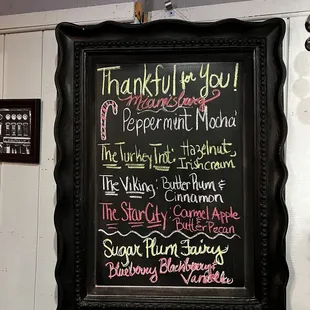 Thankful for You!
Miamisburg
Peppermint Mocha
The Turkey Trot: Hazelnut,
Irish cream
The Viking: Butter Rum &
Cinnamon
The Star City: Carmel Apple
& Butter Pecan
Sugar Plum Fairy
Blueberry Blackberry &
Vanilla